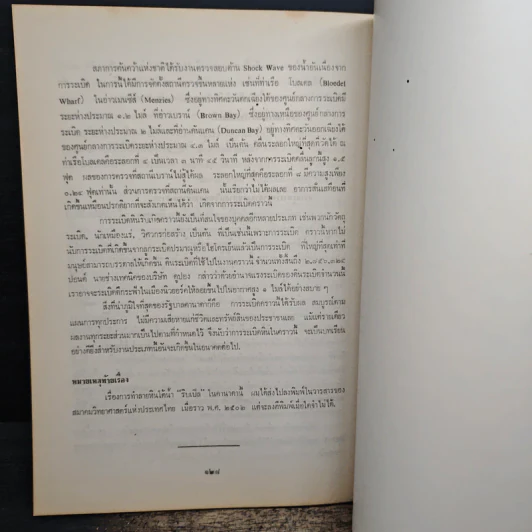 สภาการค้นคว้าแห่งชาติได้รับงานตรวจสอบด้าน Shock Wave ของน้ำอันเนื่องจาก
การระเบิด ในการนี้ได้มีการจัดตั้งสถานีตรวจขึ้นหลายแห่ง เช่นที่ท่าเรือ โบลเดล (Bloedel
Wharf) ในอ่าวเมนซีส์ (Menzies) ซึ่งอยู่ทางทิศตะวันตกเฉียงใต้ของศูนย์กลางการระเบิดมี
ระยะห่างประมาณ ๑.๖ ไมล์ ที่อ่าวเบราน์ (Brown Bay) ซึ่งอยู่ทางเหนือของศูนย์กลางการ
ระเบิด ระยะห่างประมาณ ๖ ไมล์และที่อ่าวดันแคน (Duncan Bay) อยู่ทางทิศตะวันออกเฉียงใต้
ของศูนย์กลางการระเบิดระยะห่างประมาณ ๔.๓ ไมล์ เป็นต้น คลื่นระลอกใหญ่ที่สุดที่วัดได้ ณ
ท่าเรือโบลเดลคือระลอกที่ ๔ เป็นเวลา ๓ นาที ๔๕ วินาที หลังจากการระเบิดคลื่นลูกนี้สูง
ฟุต ผลของการตรวจที่สถานีเบราน์ไม่สู้ได้ผล ระลอกใหญ่ที่สุดคือระลอกที่ ๘ มีความสูงเพียง
ฟุตเท่านั้น ส่วนการตรวจที่สถานีดันแคน นั้นเรียกว่าไม่ได้ผลเลย อาการสั่นสะเทือนที่
เกิดขึ้นเหมือนปรกติยากที่จะสังเกตเห็นได้ว่า เกิดจากการระเบิดคราวนี้
การระเบิดหินริบเกิลคราวนี้ยังเป็นที่สนใจของบุคคลอีกหลายประเภท เช่นพวกนักวัตถุ
ระเบิด, นักเหมืองแร่, วิศวกรก่อสร้าง เป็นต้น ที่เป็นเช่นนี้เพราะการระเบิด คราวนี้หากไม่
นับการระเบิดที่เกิดขึ้นจากลูกระเบิดปรมาณูหรือไฮโดรเย็นแล้วเป็นการระเบิด ที่ใหญ่ที่สุดเท่าที่
มนุษย์สามารถบรรดาลให้เกิดขึ้น ดินระเบิดที่ใช้ไปในงานคราวนี้ จำนวนทั้งสิ้นถึง
ปอนด์ นายช่างเทคนิคของบริษัท ดูปอง กล่าวว่าด้วยอำนาจแรงระเบิดของดินระเบิดจำนวนนี้
เราอาจจะระเบิดตึกระฟ้าในเมืองนิวยอร์คให้ลอยขึ้นไปในอากาศสูง ๑ ไมล์ได้อย่างสบาย ๆ
สิ่งที่น่าภูมิใจที่สุดของรัฐบาลคานาดาก็คือ การระเบิดคราวนี้ได้รับผล สมบูรณ์ตาม
แผนการทุกประการ ไม่มีความเสียหายแก่ชีวิตและทรัพย์สินของประชาชนเลย แม้แต่รายเดียว
ผลงานทุกระยะส่วนมากเป็นไปตามที่กำหนดไว้ จึงนับว่าการระเบิดหินในคราวนี้ จะเป็นบทเรียน
อย่างดียิ่งสำหรับงานประเภทนี้อันจะเกิดขึ้นในอนาคตต่อไป.
หมายเหตุท้ายเรื่อง
เรื่องการทำลายหินใต้น้ำ "ริบเปิล" ในคานาดานี้ ผมได้ส่งไปลงพิมพ์ในวารสารของ
สมาคมวิทยาศาสตร์แห่งประเทศไทย เมื่อราว พ.ศ. ๒๕๐๒ แต่จะลงตีพิมพ์เมื่อใดจำไม่ได้.
๑๒๘